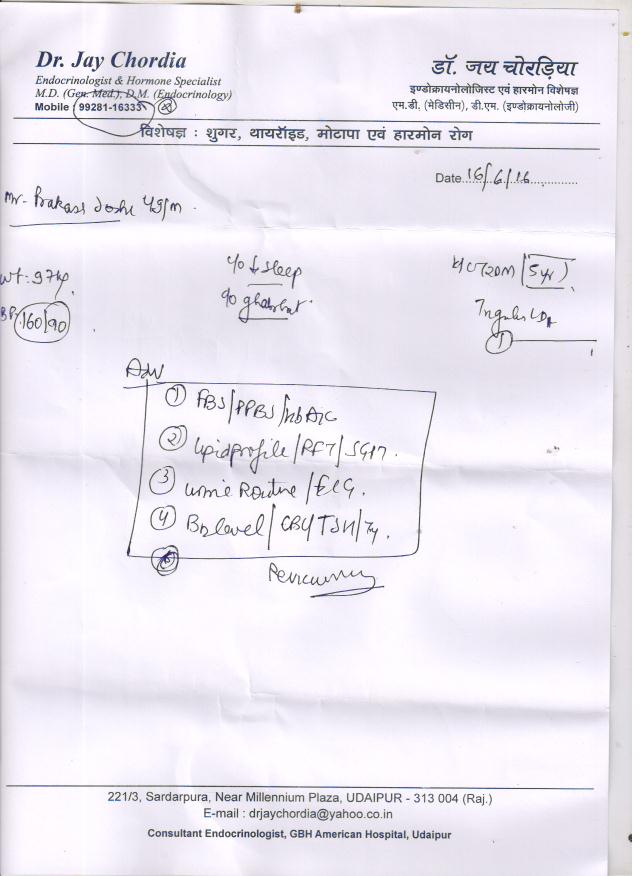 Dr. Jay Chordia
Endocrinologist & Hormone Specialist
M.D. (Gen. Med.), D.M. (Endocrinology)
Mobile : 99281-16335
डॉ. जय चोरड़िया
इण्डोक्रायनोलोजिस्ट एवं हारमोन विशेषज्ञ
एम.डी. (मेडिसीन), डी.एम. (इण्डोक्रायनोलोजी)
विशेषज्ञ : शुगर, थायरॉइड, मोटापा एवं हारमोन रोग
Date 16/6/16
Mr. Prakash Joshi 49/m.
Wt: 97kg.
BP: 160/90
c/o ↓ sleep
c/o ghabrat
T2DM (5yr)
Adv
① FBS/PPBS/HbA1C
② Lipid profile/RFT/SGPT.
③ Urine Routine/ECG.
④ B12 level/CBC/TSH/T4.
⑤
221/3, Sardarpura, Near Millennium Plaza, UDAIPUR - 313 004 (Raj.)
E-mail : drjaychordia@yahoo.co.in
Consultant Endocrinologist, GBH American Hospital, Udaipur